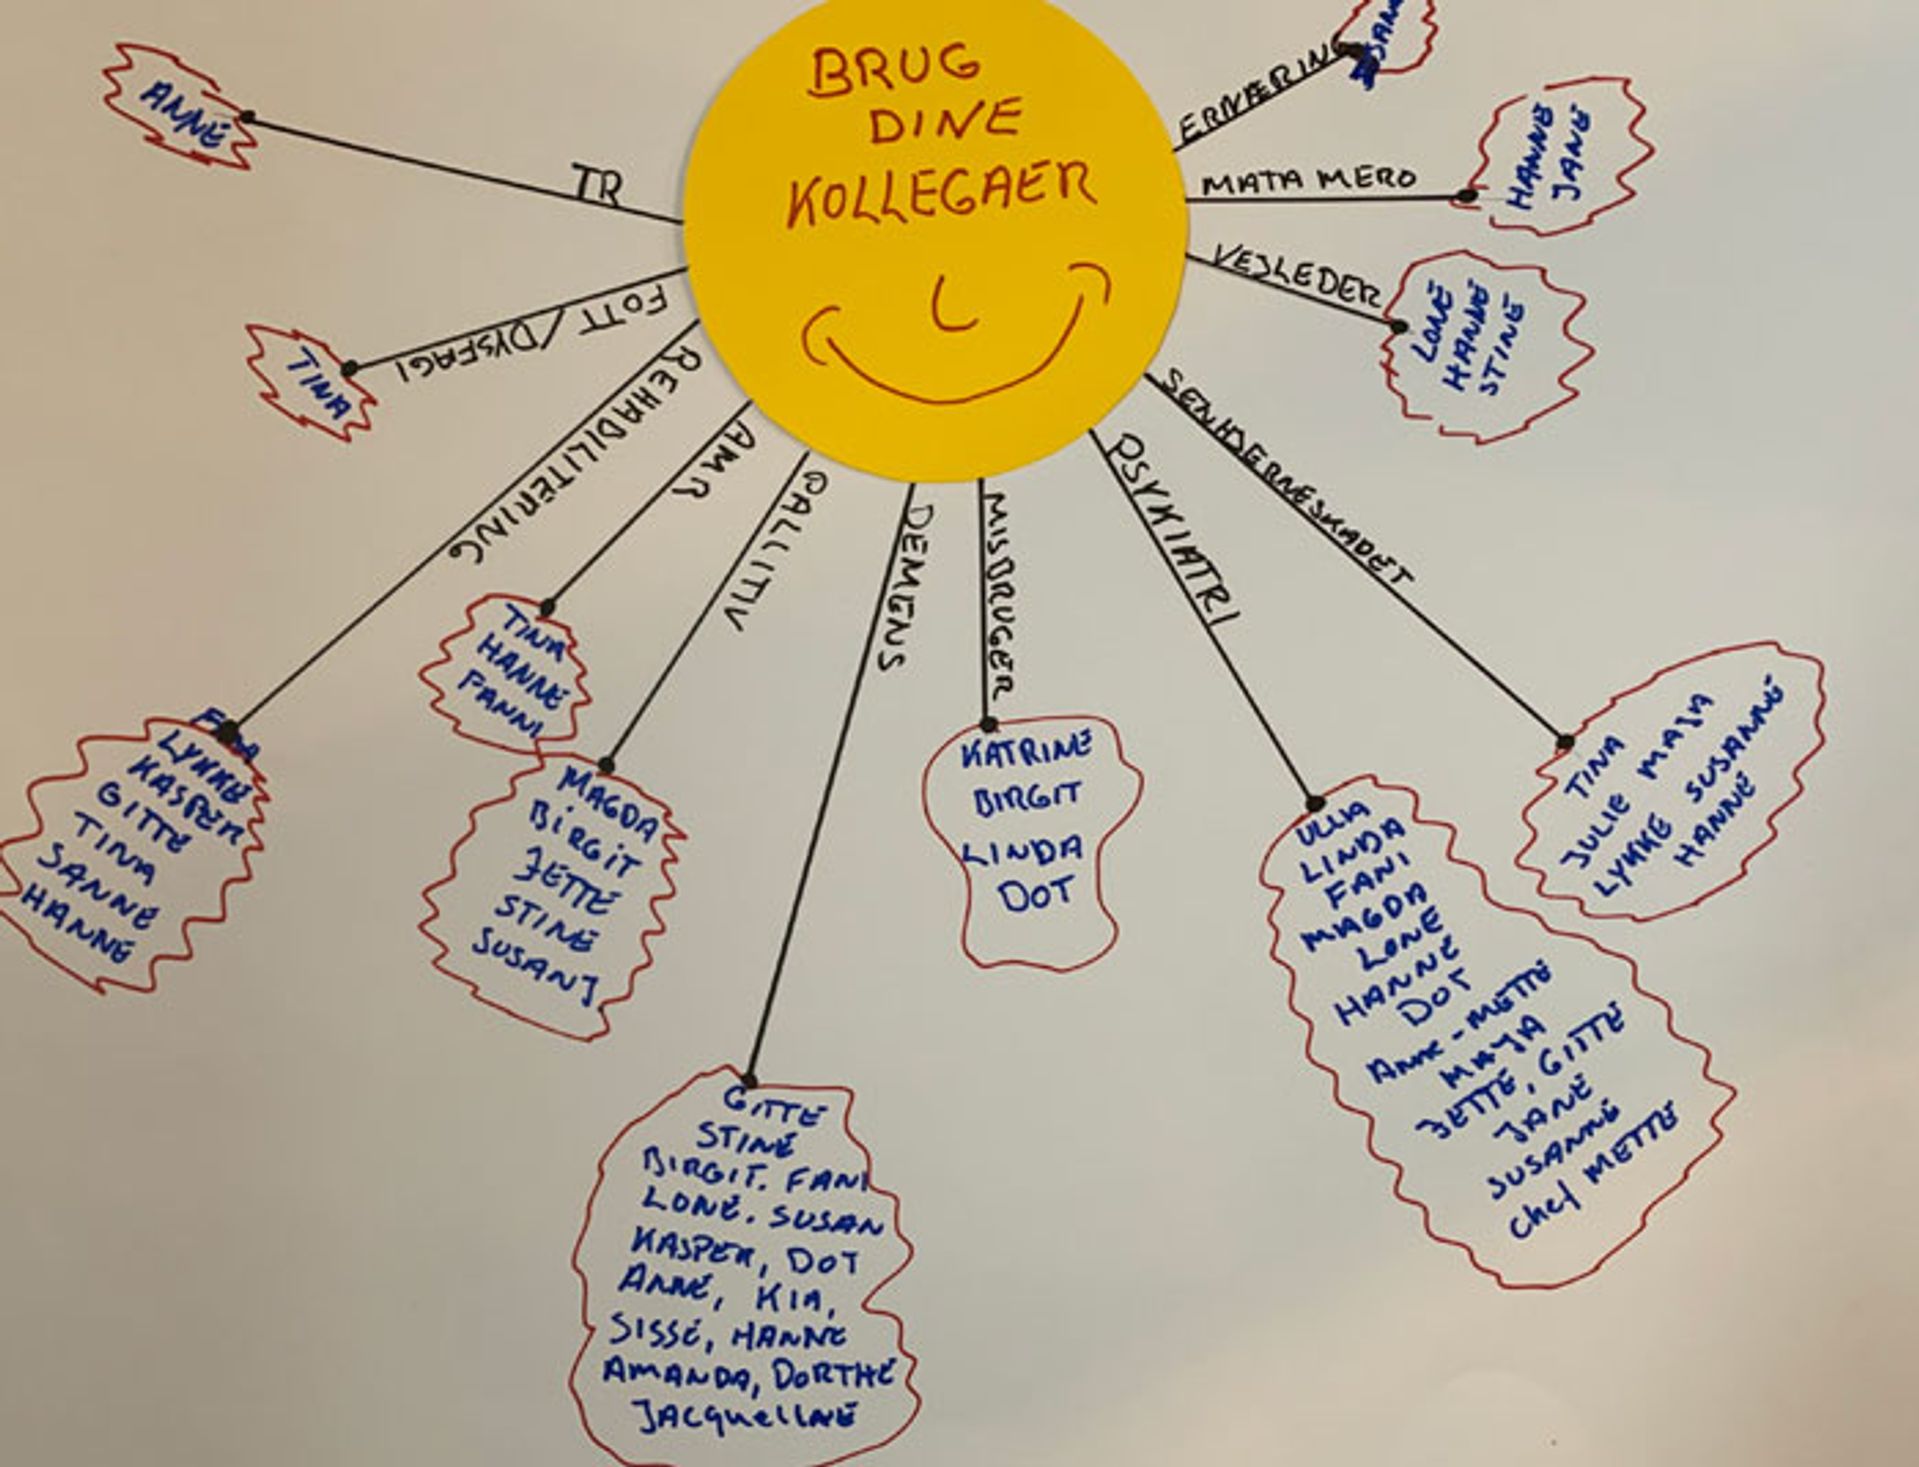 BRUG
DINE
KOLLEGAER
TR
ANNE
FOTT/DYSFAGI
TINA
REHABILITERING
LYKKE
KASPER
GITTE
TINA
SANNE
HANNE
AMR
TINA
HANNE
FANNI
PALLITIV
MAGDA
BIRGIT
JETTE
STINE
SUSAN J
DEMENS
GITTE
STINE
BIRGIT. FANI
LONE. SUSAN
KASPER, DOT
ANNE, KIA,
SISSE, HANNE
AMANDA, DORTHE
JACQUELINE
MISBRUGER
KATRINE
BIRGIT
LINDA
DOT
PSYKIATRI
ULLA
LINDA
FANI
MAGDA
LONE
HANNE
DOT
ANNE-METTE
MAJA
JETTE, GITTE
JANE
SUSANNE
Chef METTE
SENHJERNESKADET
TINA
JULIE MAJA
LYKKE SUSANNE
HANNE
VEJLEDER
LONE
HANNE
STINE
MATA MERO
HANNE
JANE
ERNÆRING